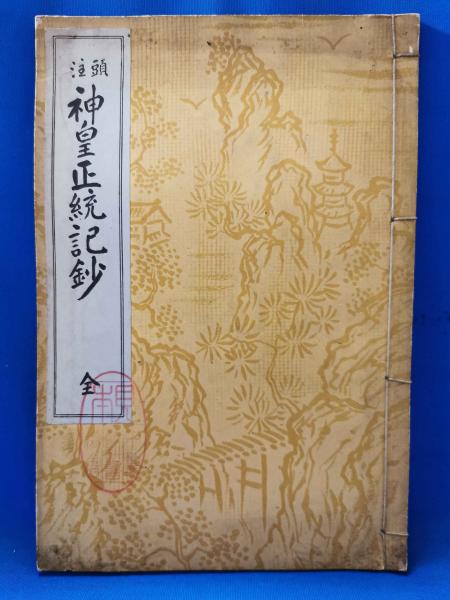 頭注
神皇正統記鈔
全